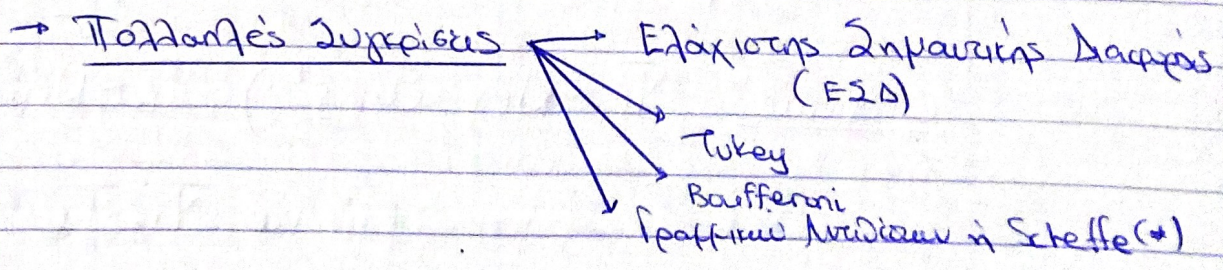 → Πολλαπλές Συγκρίσεις → Ελάχιστης Σημαντικής Διαφοράς
(ΕΣΔ)
Tukey
Boufferoni
Γραμμικών Αντιθέσεων ή Scheffe (*)